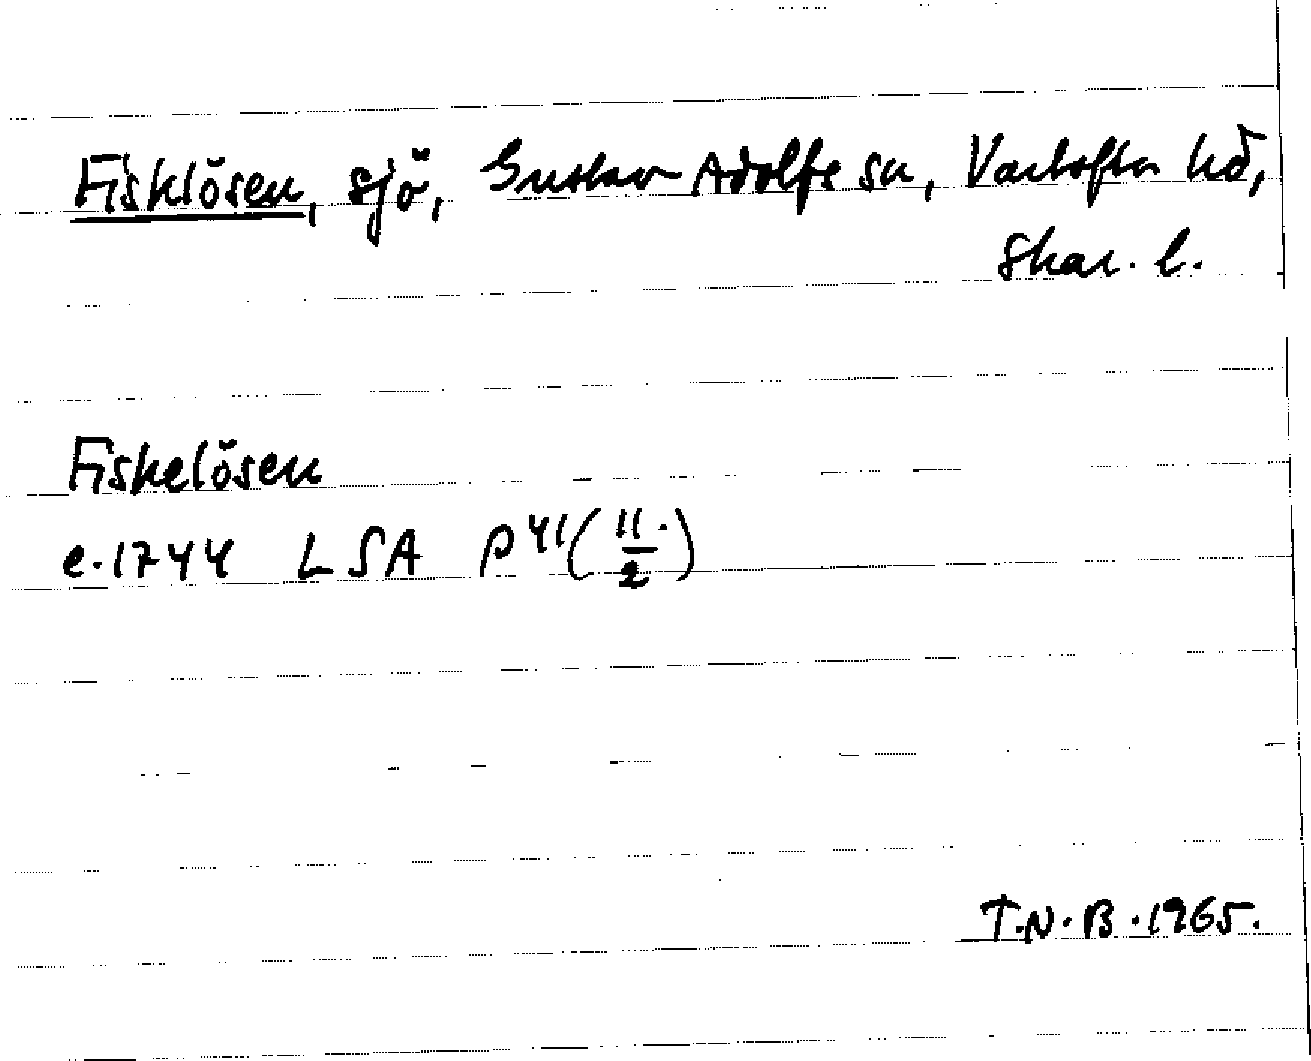 Fisklösen, sjö, Gustav Adolfs sn, Vartofta hd,
Skar. l.
Fiskelösen
e. 1744 LSA P 41 (11/2)
T.N.B. 1965.